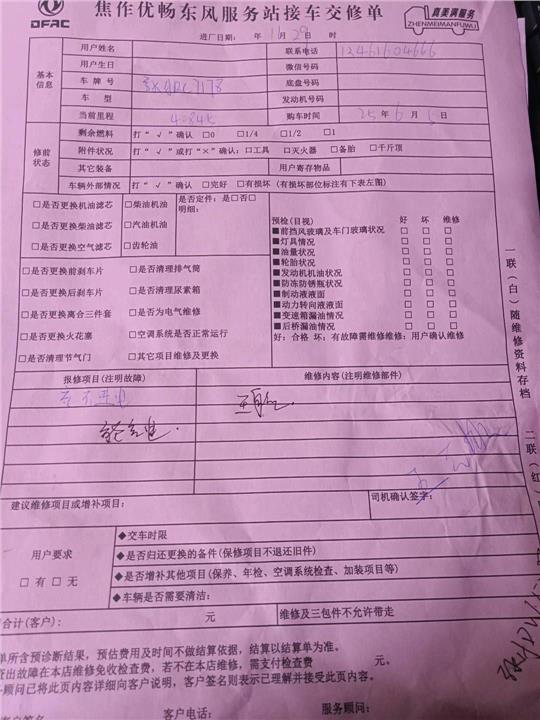 DFAC
焦作优畅东风服务站接车交修单
真美满服务
ZHENMEIMANFUWU
进厂日期: 年 月 29 日 时
基本信息
用户姓名
联系电话
用户生日
微信号码
车牌号
底盘号码
车型
发动机号码
当前里程
购车时间 25年6月 日
修前状态
剩余燃料 打“√”确认 □0 □1/4 □1/2 □1
附件状况 打“√”或打“×”确认:□工具 □灭火器 □备胎 □千斤顶
其它装备
用户寄存物品
车辆外部情况 打“√”确认 □完好 □有损坏 (有损坏部位标注有下表左图)
□是否更换机油滤芯 □柴油机油
是否定件:是□否□
明细:
□是否更换柴油滤芯 □汽油机油
□是否更换空气滤芯 □齿轮油
□是否更换前刹车片 □是否清理排气筒
□是否更换后刹车片 □是否清理尿素箱
□是否更换离合三件套 □是否为电气维修
□是否更换火花塞 □空调系统是否正常运行
□是否清理节气门 □其它项目维修及更换
预检(目视) 好 坏 维修
■前挡风玻璃及车门玻璃状况 □ □ □
■灯具情况 □ □ □
■油量状况 □ □ □
■轮胎状况 □ □ □
■发动机机油状况 □ □ □
■防冻防锈瓶状况 □ □ □
■制动液液面 □ □ □
■动力转向液液面 □ □ □
■变速箱漏油情况 □ □ □
■后桥漏油情况 □ □ □
好:合格 坏:有故障需维修维修:用户确认维修
报修项目(注明故障)
维修内容(注明维修部件)
建议维修项目或增补项目:
司机确认签字:
用户要求
□有 □无
◆交车时限
◆是否归还更换的备件(保修项目不退还旧件)
◆是否增补其他项目(保养、年检、空调系统检查、加装项目等)
◆车辆是否需要清洁:
合计(客户): 元
维修及三包件不允许带走
单所含预诊断结果,预估费用及时间不做结算依据,结算以结算单为准。
查出故障在本店维修免收检查费,若不在本店维修,需支付检查费 元。
务顾问已将此页内容详细向客户说明,客户签名则表示已理解并接受此页内容。
客户签名
客户电话:
服务顾问:
一联(白)随维修资料存档
二联(红)